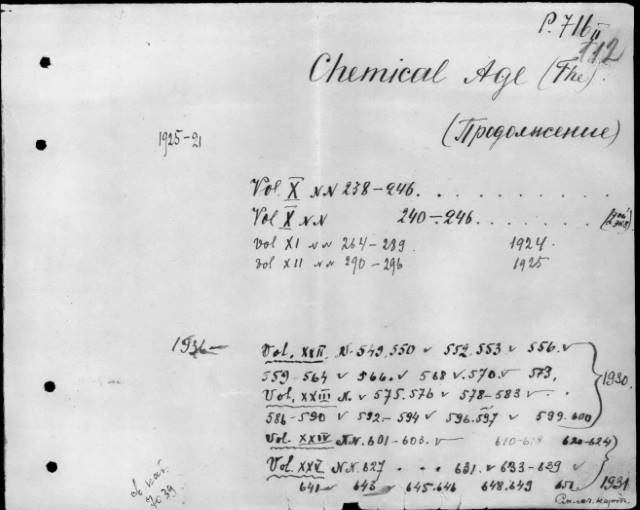 P. 716 II
112
Chemical Age (The).
(Продолжение)
1925-21
Vol X NN 238-246. . . . . . . . . . .
Vol X NN 240-246. . . . . . . .
vol XI NN 264-289 1924.
vol XII NN 290-296 1925
Vol. XXII. N. 549. 550 v 552. 553 v 556. v
559-564 v 566. v 568 v. 570. v 573.
Vol. XXIII N. v 575. 576 v 578-583 v
586-590 v 592-594 v 596. 597 v 599. 600
1930.
Vol. XXIV NN. 601-603. v 610-618 620-624
Vol. XXV NN. 627 . . . 631. v 633-639 v
641 v 643 v 645. 646 648. 649 652
1931
См. леч. карт.